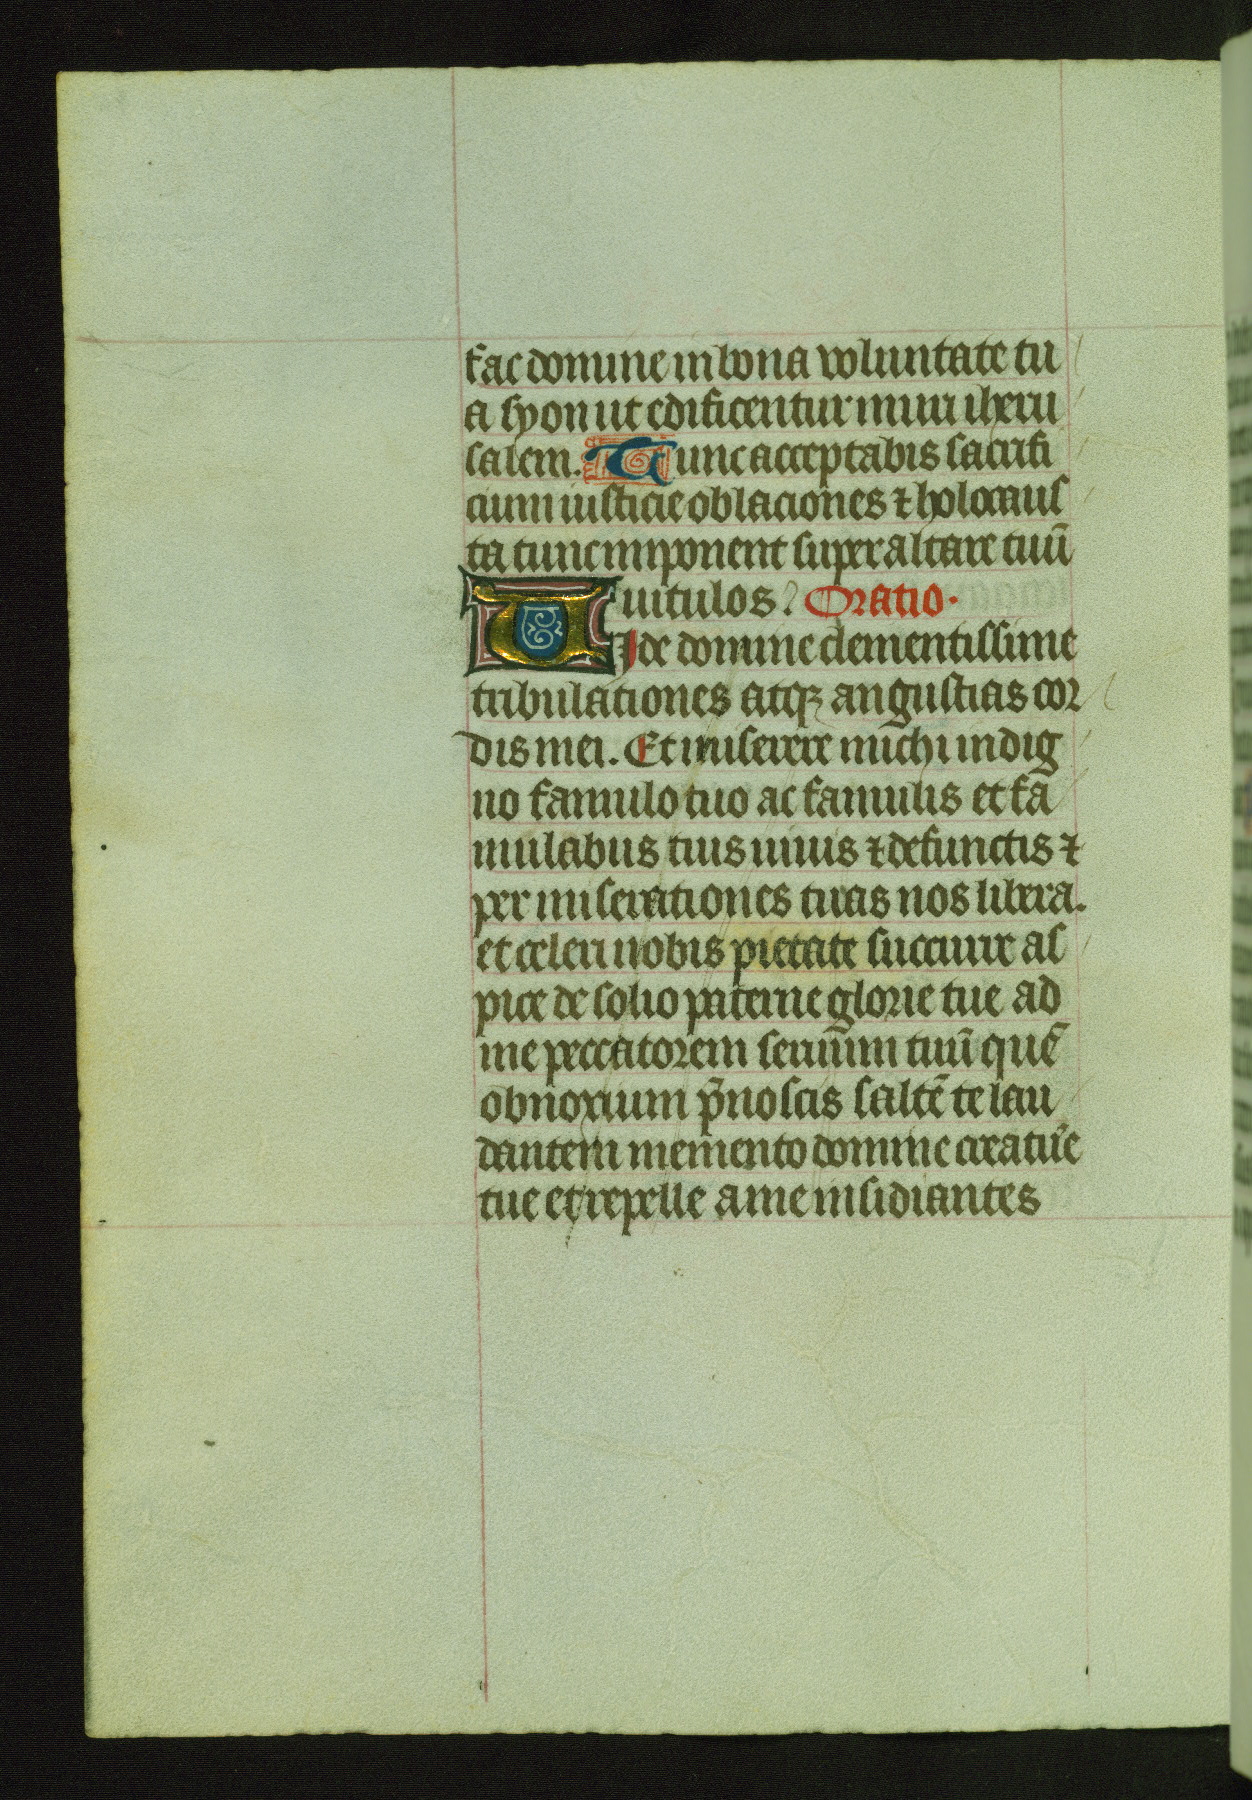 fac domine in bona voluntate tu
a syon ut edificentur muri iheru
salem. Tunc acceptabis sacrifi
cium iusticie oblaciones ⁊ holocaus
ta tunc imponent super altare tuū
uitulos? Oratio.
VIde domine clementissime
tribulationes atqꝫ angustias cor
dis mei. Et miserere michi indig
no famulo tuo ac famulis et fa
mulabus tuis uiuis ⁊ defunctis ⁊
per miserationes tuas nos libera.
et celeri nobis pietate succurre as
pice de solio paterne glorie tue ad
me peccatorem seruum tuū quē
obnoxium p̄noscis saltē te lau
dantem memento domine creature
tue et repelle a me insidiantes